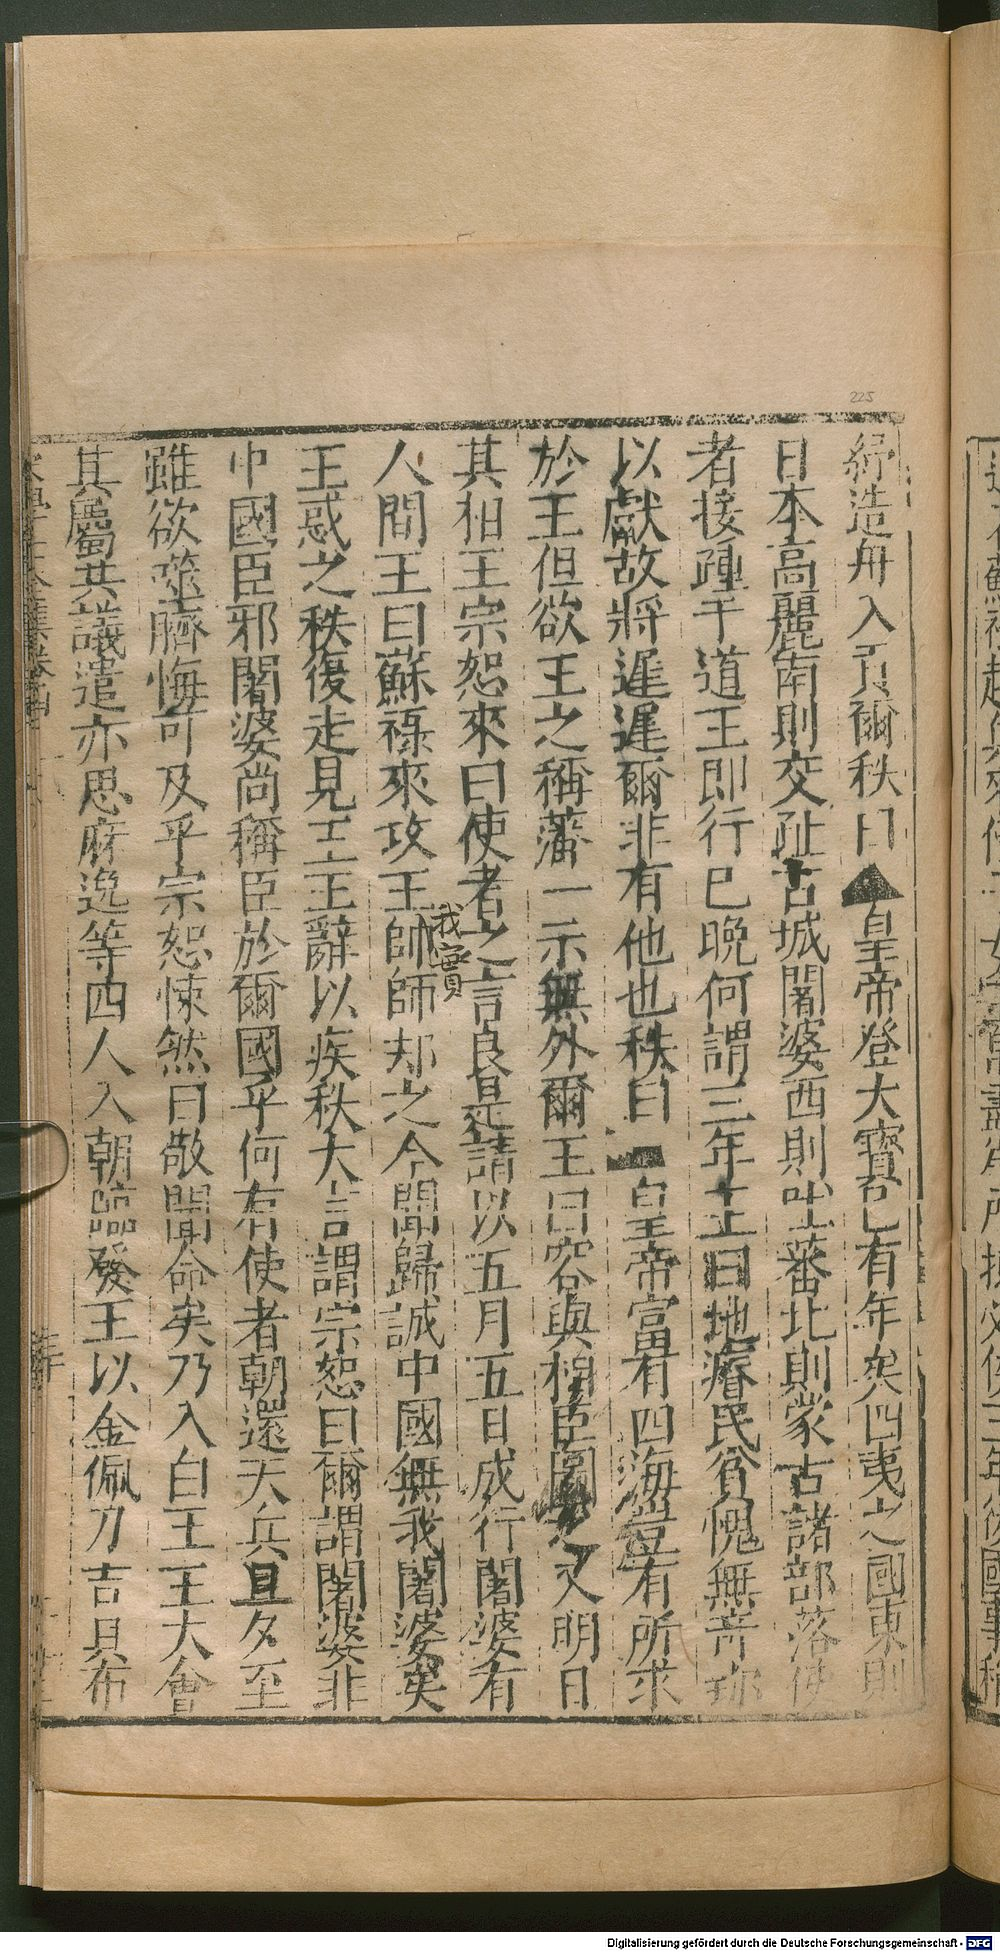 紓造舟入貢爾秩曰皇帝登大寶已有年矣四夷之國東則
日本高麗南則交趾占城闍婆西則吐蕃北則蒙古諸部落使
者接踵于道王即行已晚何謂三年王曰地瘠民貧愧無奇珍
以獻故將遲遲爾非有他也秩曰皇帝富有四海豈有所求
於王但欲王之稱藩一示無外爾王曰容與相臣圖之又明日
其相王宗恕來曰使者之言良是請以五月五日成行闍婆有
人間王曰蘇祿來攻王師師却之今聞歸誠中國無我闍婆矣
我實
王惑之秩復走見王王辭以疾秩大言謂宗恕曰爾謂闍婆非
中國臣邪闍婆尚稱臣於爾國乎何有使者朝還天兵旦夕至
雖欲噬臍悔可及乎宗恕悚然曰敬聞命矣乃入白王王大會
其屬共議遣亦思麻逸等四人入朝臨發王以金佩刀吉貝布
225
Digitalisierung gefördert durch die Deutsche Forschungsgemeinschaft - DFG